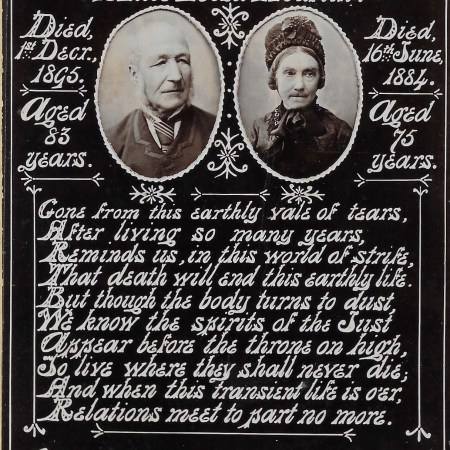 Died,
1st Decr.,
1895.
Aged
83
years.
Died,
16th June,
1884.
Aged
75
years.
Gone from this earthly vale of tears,
After living so many years,
Reminds us, in this world of strife,
That death will end this earthly life.
But though the body turns to dust,
We know the spirits of the Just
Appear before the throne on high,
To live where they shall never die;
And when this transient life is o'er,
Relations meet to part no more.